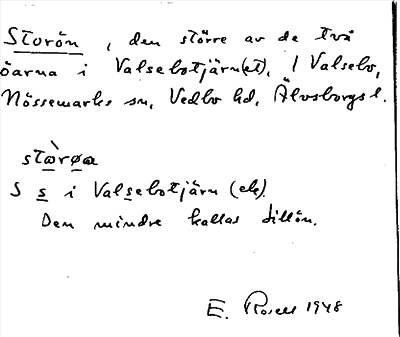 Storön, den större av de två
öarna i Valsebotjärn(et), i Valsebo,
Nössemarks sn, Vedbo hd, Älvsborgs l.
stòrøa
S s i Valsebotjärn (ek).
Den mindre kallas Lillön.
E. Rosell 1948